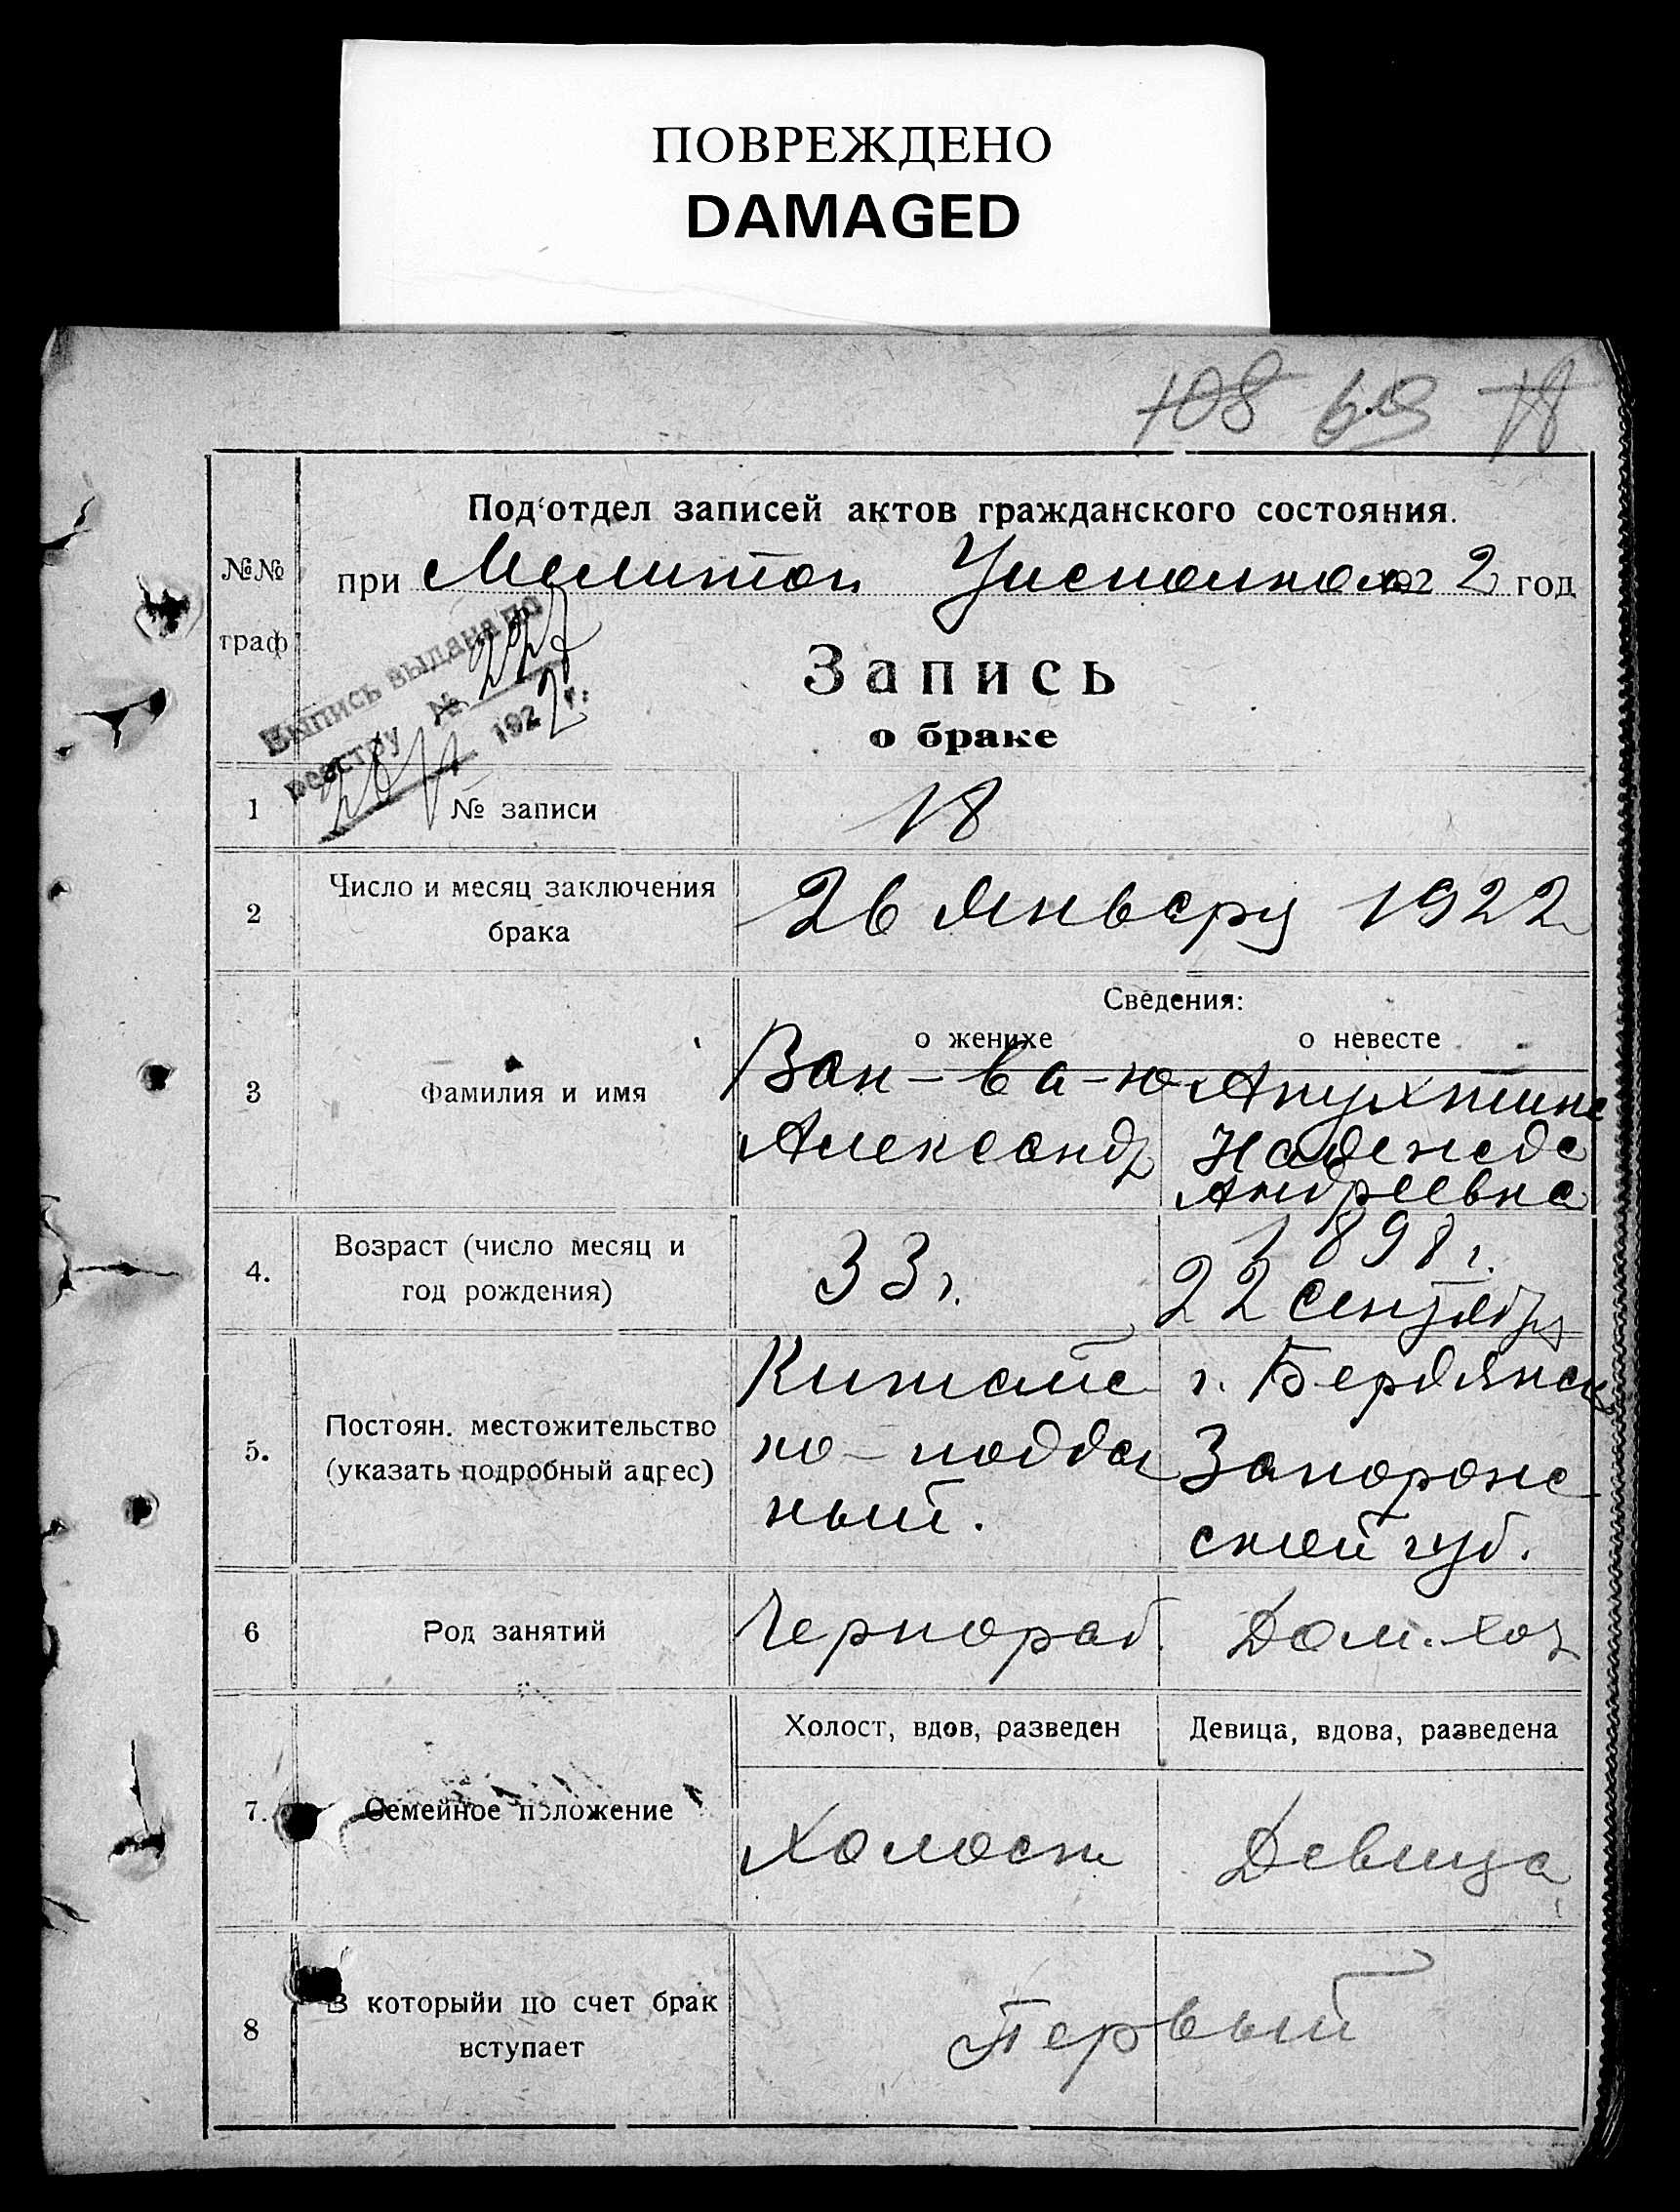 ПОВРЕЖДЕНО
DAMAGED
108 69 18
Под‘отдел записей актов гражданского состояния.
№№ граф
при Мелитоп. Уисполкоме 192 2 год
Выпись выдана по
реестру № 227
192 2 г.
Запись
о браке
1 № записи 18
2 Число и месяц заключения
брака
26 Январу 1922
Сведения:
о женихе о невесте
3 Фамилия и имя
Ван-Ва-Ю
Александр
Апухтина
Надежда
Андреевна
4. Возраст (число месяц и
год рождения)
33 г.
1898 г.
22 Сентября
5. Постоян. местожительство
(указать подробный адрес)
Китайс
ко-поддан
ный.
г. Бердянск
Запорож
ской губ.
6 Род занятий
Чернораб.
Дом. хоз
Холост, вдов, разведен
Девица, вдова, разведена
7. Семейное положение
Холост
Девица
8 В которыйи по счет брак
вступает
Первый